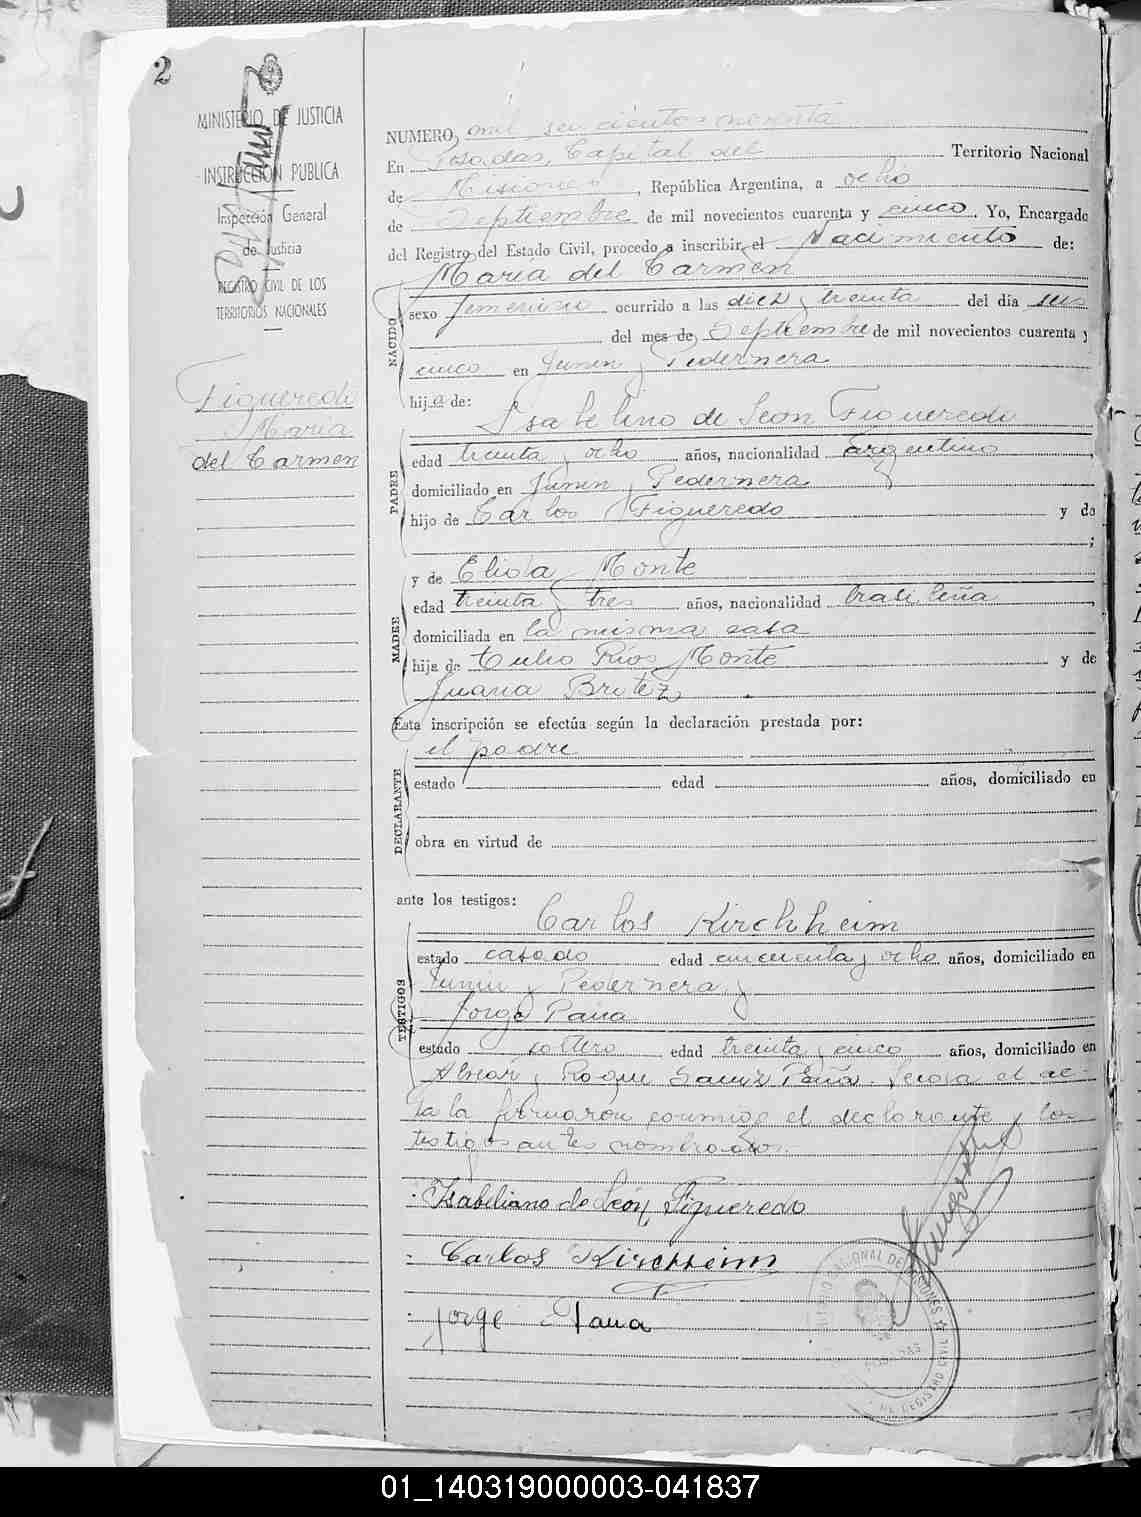 2
MINISTERIO DE JUSTICIA
INSTRUCCION PUBLICA
Inspección General
de Justicia
REGISTRO CIVIL DE LOS
TERRITORIOS NACIONALES
Figueredo
María
del Carmen
NUMERO, mil seiscientos noventa
En Posadas, Capital del Territorio Nacional
de Misiones, República Argentina, a ocho
de Septiembre de mil novecientos cuarenta y cinco. Yo, Encargado
del Registro del Estado Civil, procedo a inscribir el Nacimiento de:
María del Carmen
NACIDO
sexo femenino ocurrido a las diez y treinta del día seis
del mes de Septiembre de mil novecientos cuarenta y
cinco en Junin y Pedernera
hija de:
Isabelino de Leon Figueredo
PADRE
edad treinta y ocho años, nacionalidad Argentino
domiciliado en Junin y Pedernera
hijo de Carlos Figueredo y de
;
y de Elida Monte
MADRE
edad treinta y tres años, nacionalidad brasileña
domiciliada en la misma casa
hija de Tulio Ríos Monte y de
Juana Britez.
Esta inscripción se efectúa según la declaración prestada por:
el padre
DECLARANTE
estado edad años, domiciliado en
obra en virtud de
ante los testigos:
Carlos Kirchheim
TESTIGOS
estado casado edad cincuenta y ocho años, domiciliado en
Junin y Pedernera y
Jorge Pana
estado soltero edad treinta y cinco años, domiciliado en
Alvear y Roque Saenz Peña. Leida el ac-
ta la firmaron conmigo el declarante y los
testigos antes nombrados.
Isabeliano de León Figueredo
Carlos Kirchheim
Jorge Pana
REGISTRO CIVIL
POSADAS
01_140319000003-041837